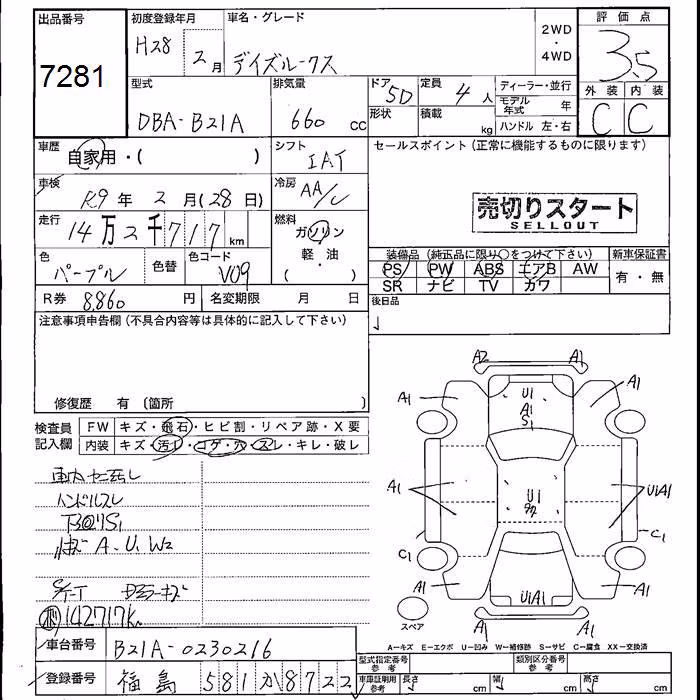 出品番号
7281
初度登録年月
H28 2月
車名・グレード
デイズルークス
2WD
・
4WD
評価点
3.5
外装 内装
C C
型式
DBA-B21A
排気量
660 cc
ドア 5D
形状
定員 4人
積載 kg
ディーラー・並行
モデル年式 年
ハンドル 左・右
車歴
自家用・( )
シフト
IAT
セールスポイント (正常に機能するものに限ります)
車検
R9年 2月(28日)
冷房
AA/C
売切りスタート
SELLOUT
走行
14万2千717km
燃料
ガソリン
軽・油
( )
色
パープル
色替
色コード
V09
装備品 (純正品に限り○をつけて下さい)
新車保証書
PS PW ABS エアB AW
SR ナビ TV カワ
有・無
R券 8,860円
名変期限 月 日
後日品
注意事項申告欄 (不具合内容等は具体的に記入して下さい)
修復歴 有 (箇所 )
検査員記入欄
FW キズ・飛石・ヒビ割・リペア跡・X要
内装 キズ・汚レ・コゲ・穴・スレ・キレ・破レ
ハンドルスレ
A・U・W2
142717K
A2 A1
A1 A1
U1
A1
S1
A1 U1 U1A1
C1 C1
A1 A1
U1A1
スペア
A-キズ E-エクボ U-凹み W-補修跡 S-サビ C-腐食 XX-交換済
車台番号 B21A-0230216
登録番号 福島 581 か 8722
型式指定番号 参考
類別区分番号 参考
車庫証明用 参考
長さ cm 幅 cm 高さ cm